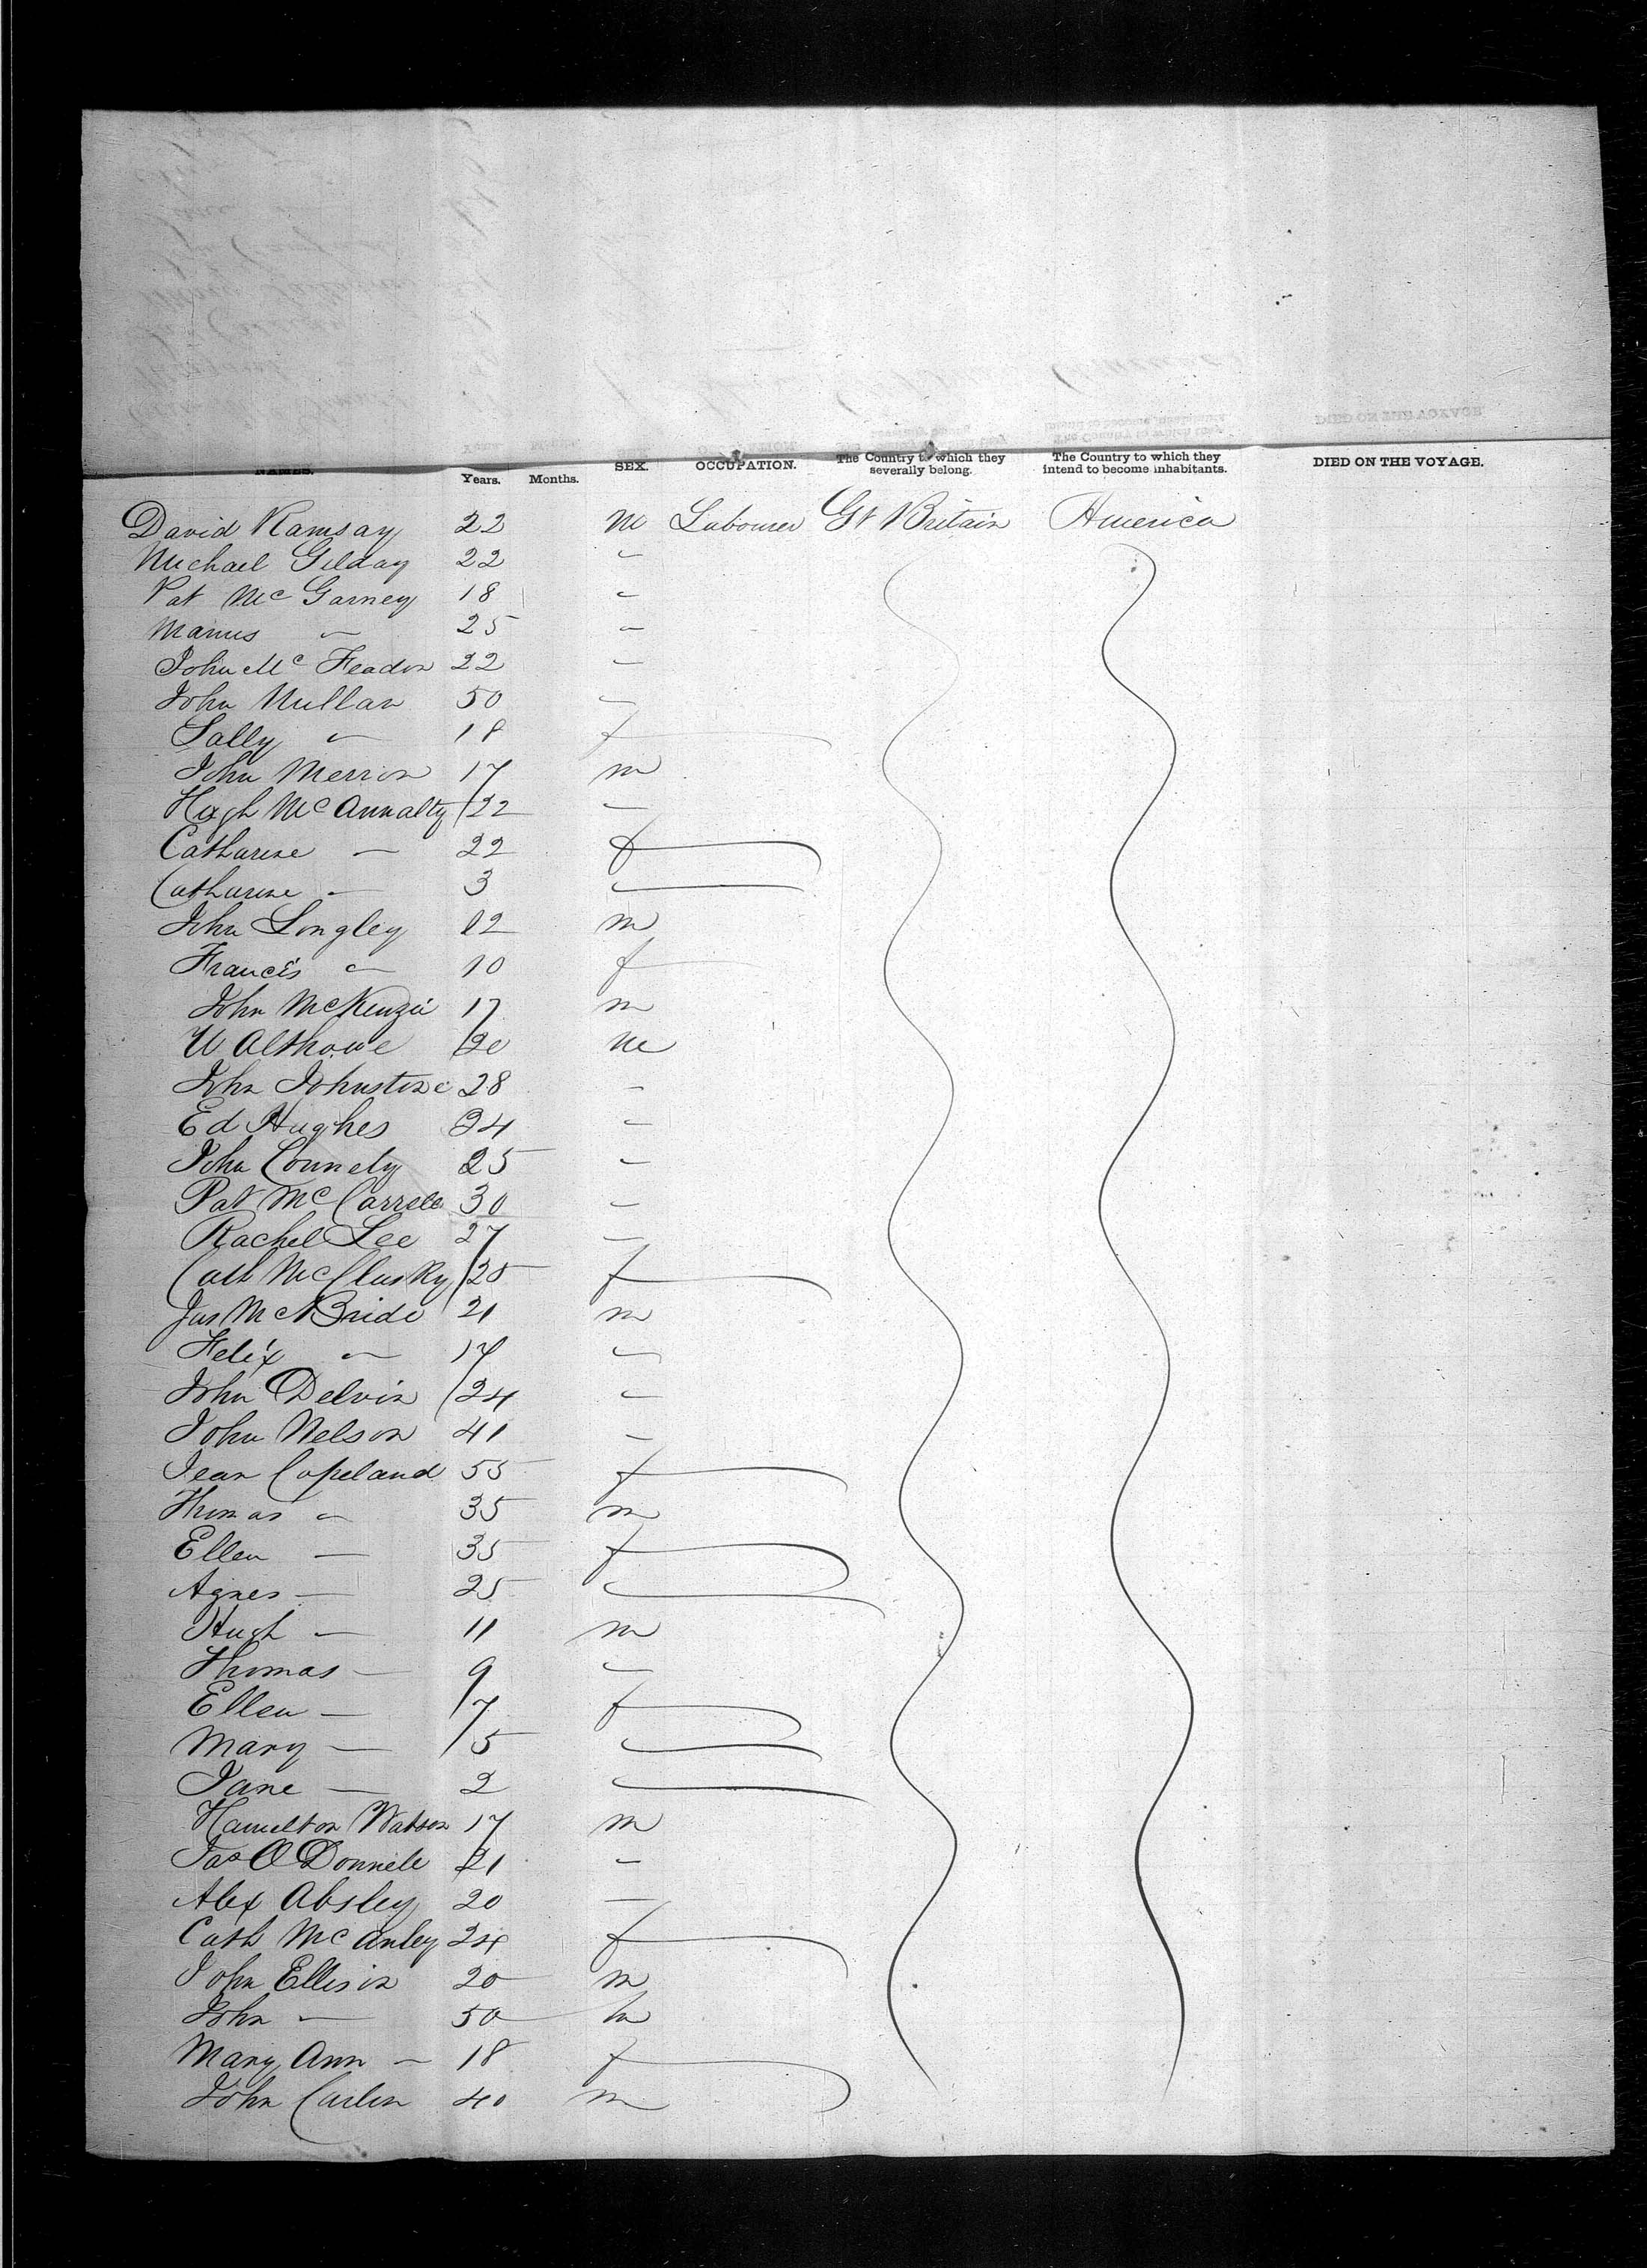 NAMES. Years. Months. SEX. OCCUPATION. The Country to which they severally belong. The Country to which they intend to become inhabitants. DIED ON THE VOYAGE.
David Ramsay 22 m Labourer Gt Britain America
Michael Gilday 22 "
Pat McGarney 18 "
Manus " 25 "
John McFeadon 22 "
John Mullan 50 "
Sally " 18 f
John Merron 17 m
Hugh McAnnalty 22 "
Catharine " 22 f
Catharine " 3 "
John Longley 12 m
Francis " 10 f
John McKenzie 17 m
W 20 m
John Johnstone 28 "
Ed Hughes 24 "
John Connely 25 "
Pat McCarrell 30 "
Rachel Lee 27 "
Cath McClusky 25 f
Jas McBride 21 m
Felix " 17 "
John Delvin 24 "
John Nelson 41 "
Jean Copeland 55 f
Thomas " 35 m
Ellen " 35 f
Agnes " 25 "
Hugh " 11 m
Thomas " 9 "
Ellen " 7 f
Mary " 5 "
Jane " 2 "
Hamelton Watson 17 m
Jas O Donnell 21 "
Alex Absley 20 "
Cath McAnley 24 f
John Ellison 20 m
John " 50 m
Mary Ann " 18 f
John Carlin 40 m